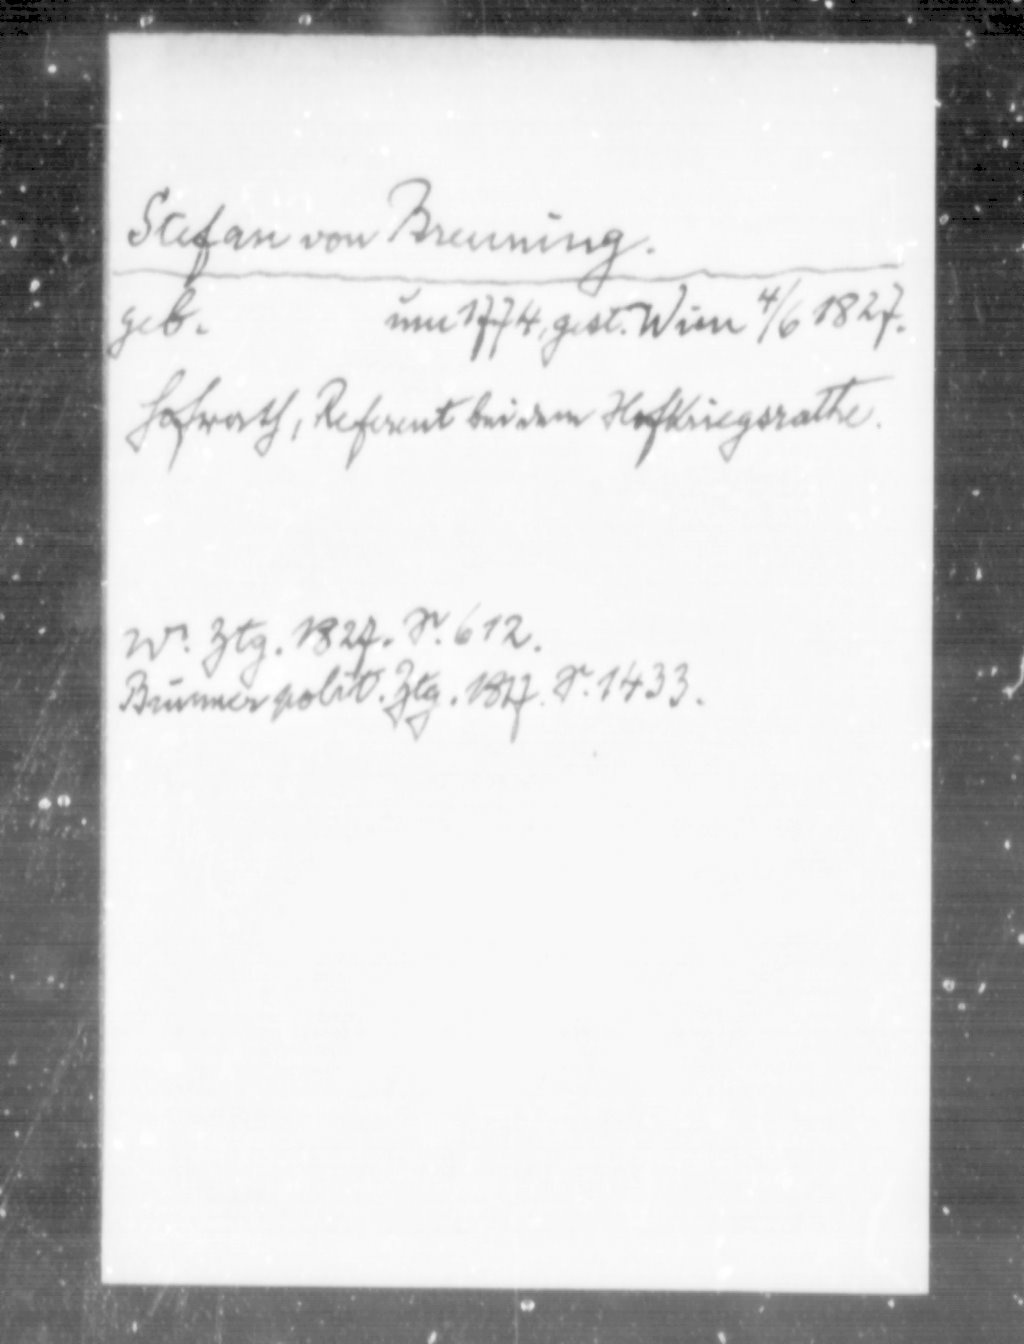 Stefan von Breuning.
geb. um 1774, gest. Wien 4/6 1827.
Hofrath, Referent bei dem Hofkriegsrathe.
Wr. Ztg. 1827. S. 612.
Brünner polit. Ztg. 1827. S. 1433.